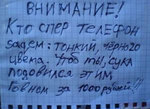 ВНИМАНИЕ!
Кто спер телефон
задем: тонкий, чёрного
цвета. Чтоб ты, сука
подавился этим
говном за 1000 рублей!!!